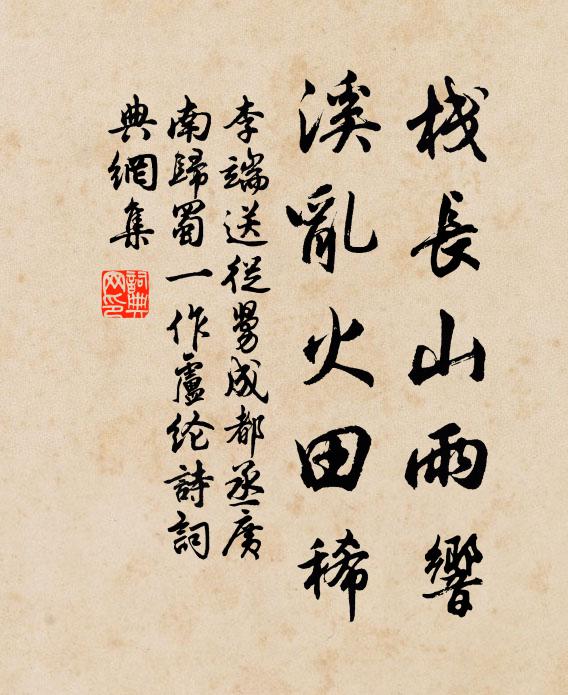 栈長山雨響
溪亂火田稀
李端送從舅成都丞廣
南歸蜀一作盧纶詩詞
典網集
詞典
网印